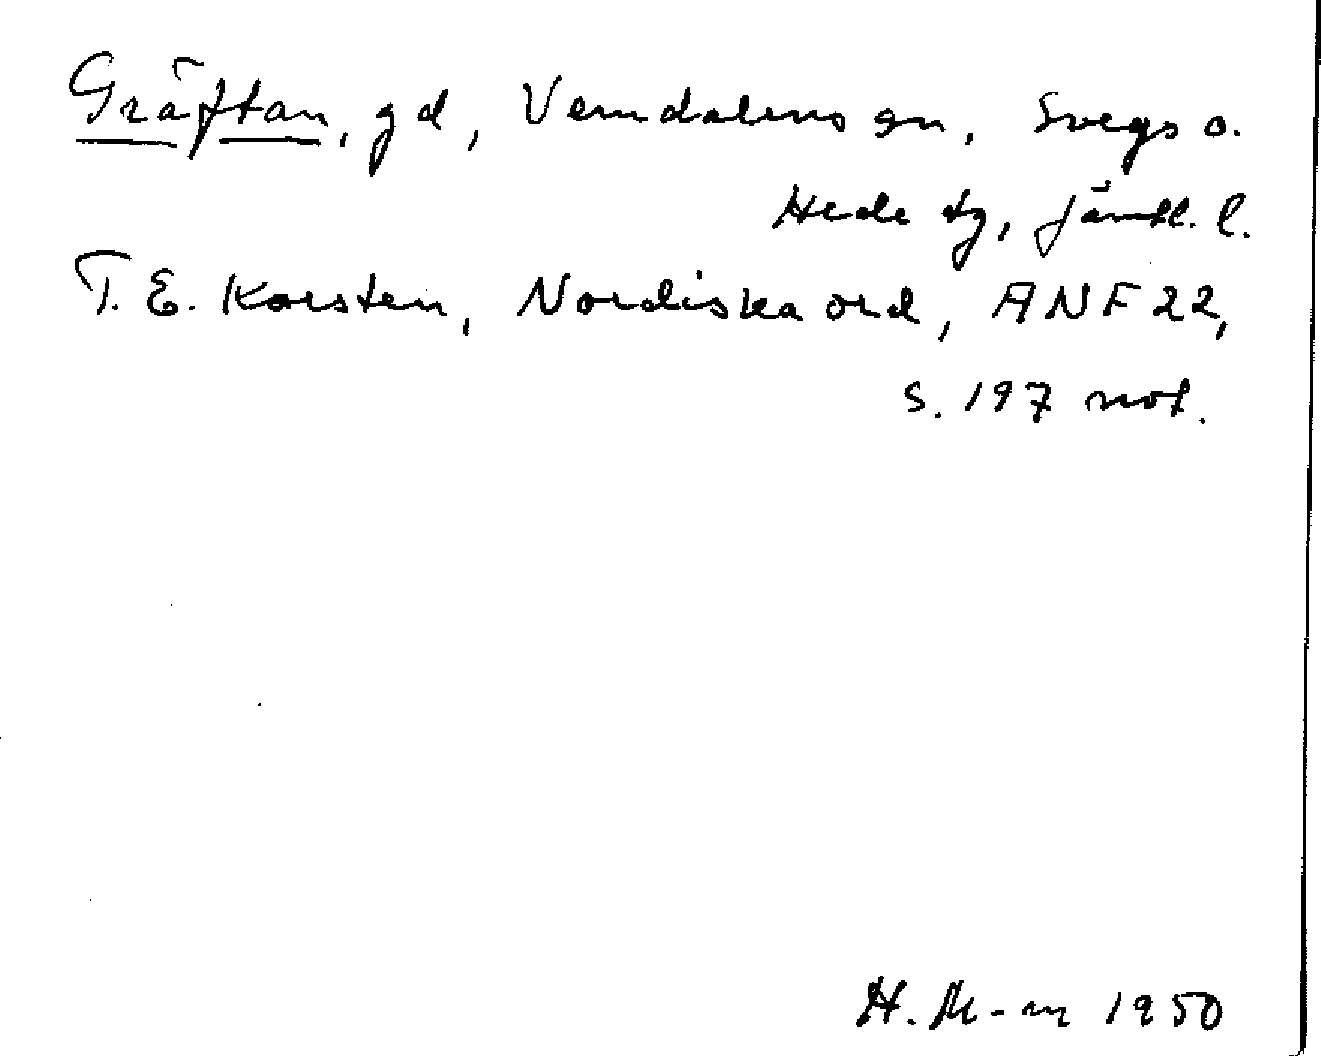 Gräftan, gd, Vemdalens sn, Svegs o.
Hede tg, Jämtl. l.
T. E. Karsten, Nordiska ord, ANF 22,
s. 197 not.
H. M-m 1950